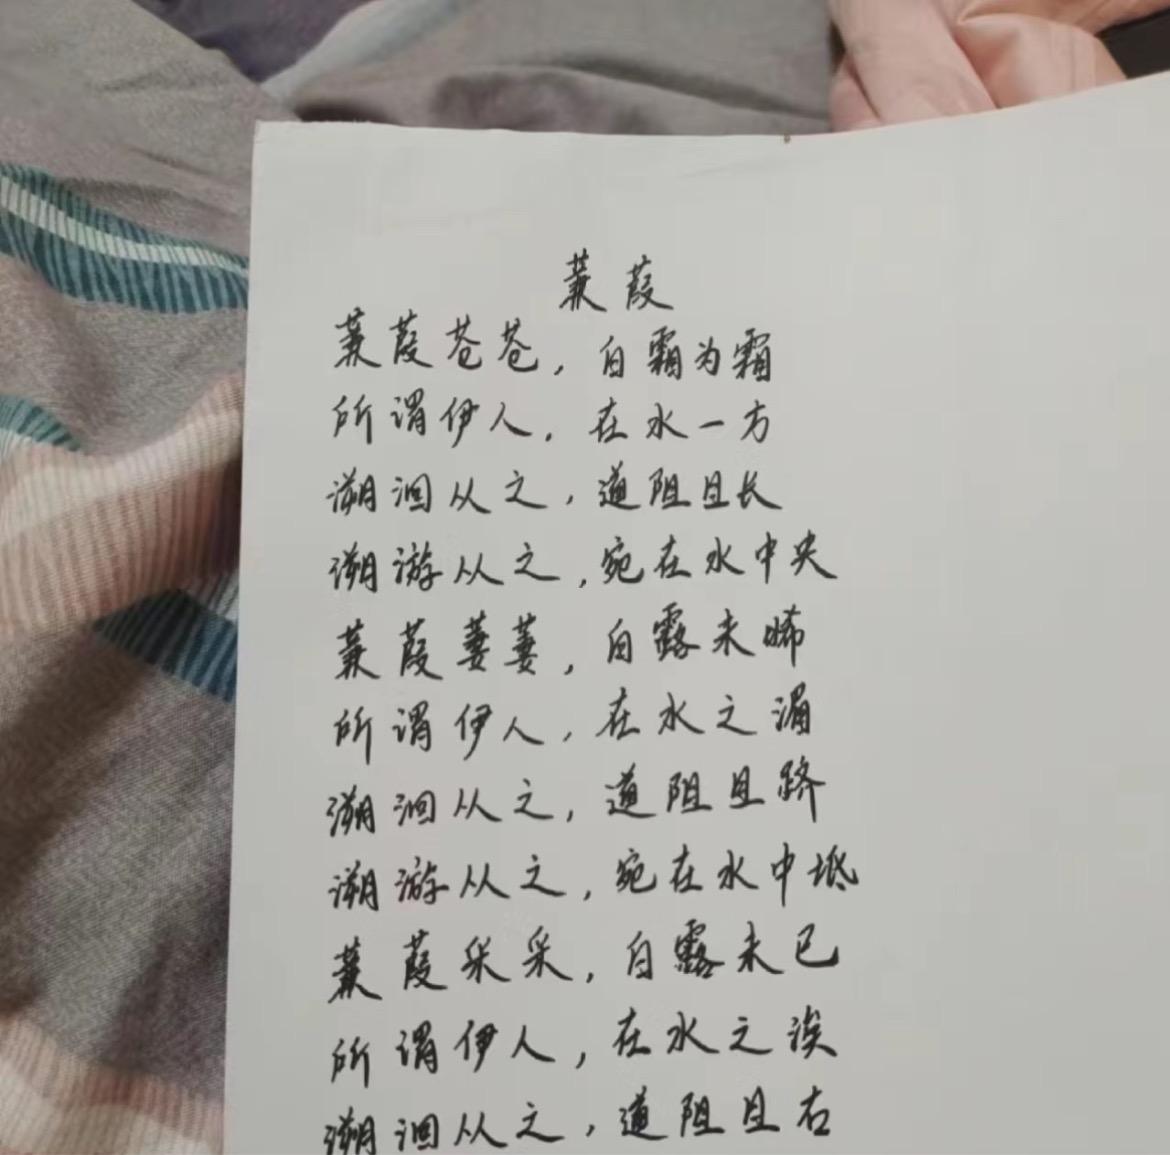 蒹葭
蒹葭苍苍，白霜为霜
所谓伊人，在水一方
溯洄从之，道阻且长
溯游从之，宛在水中央
蒹葭萋萋，白露未晞
所谓伊人，在水之湄
溯洄从之，道阻且跻
溯游从之，宛在水中坻
蒹葭采采，白露未已
所谓伊人，在水之涘
溯洄从之，道阻且右